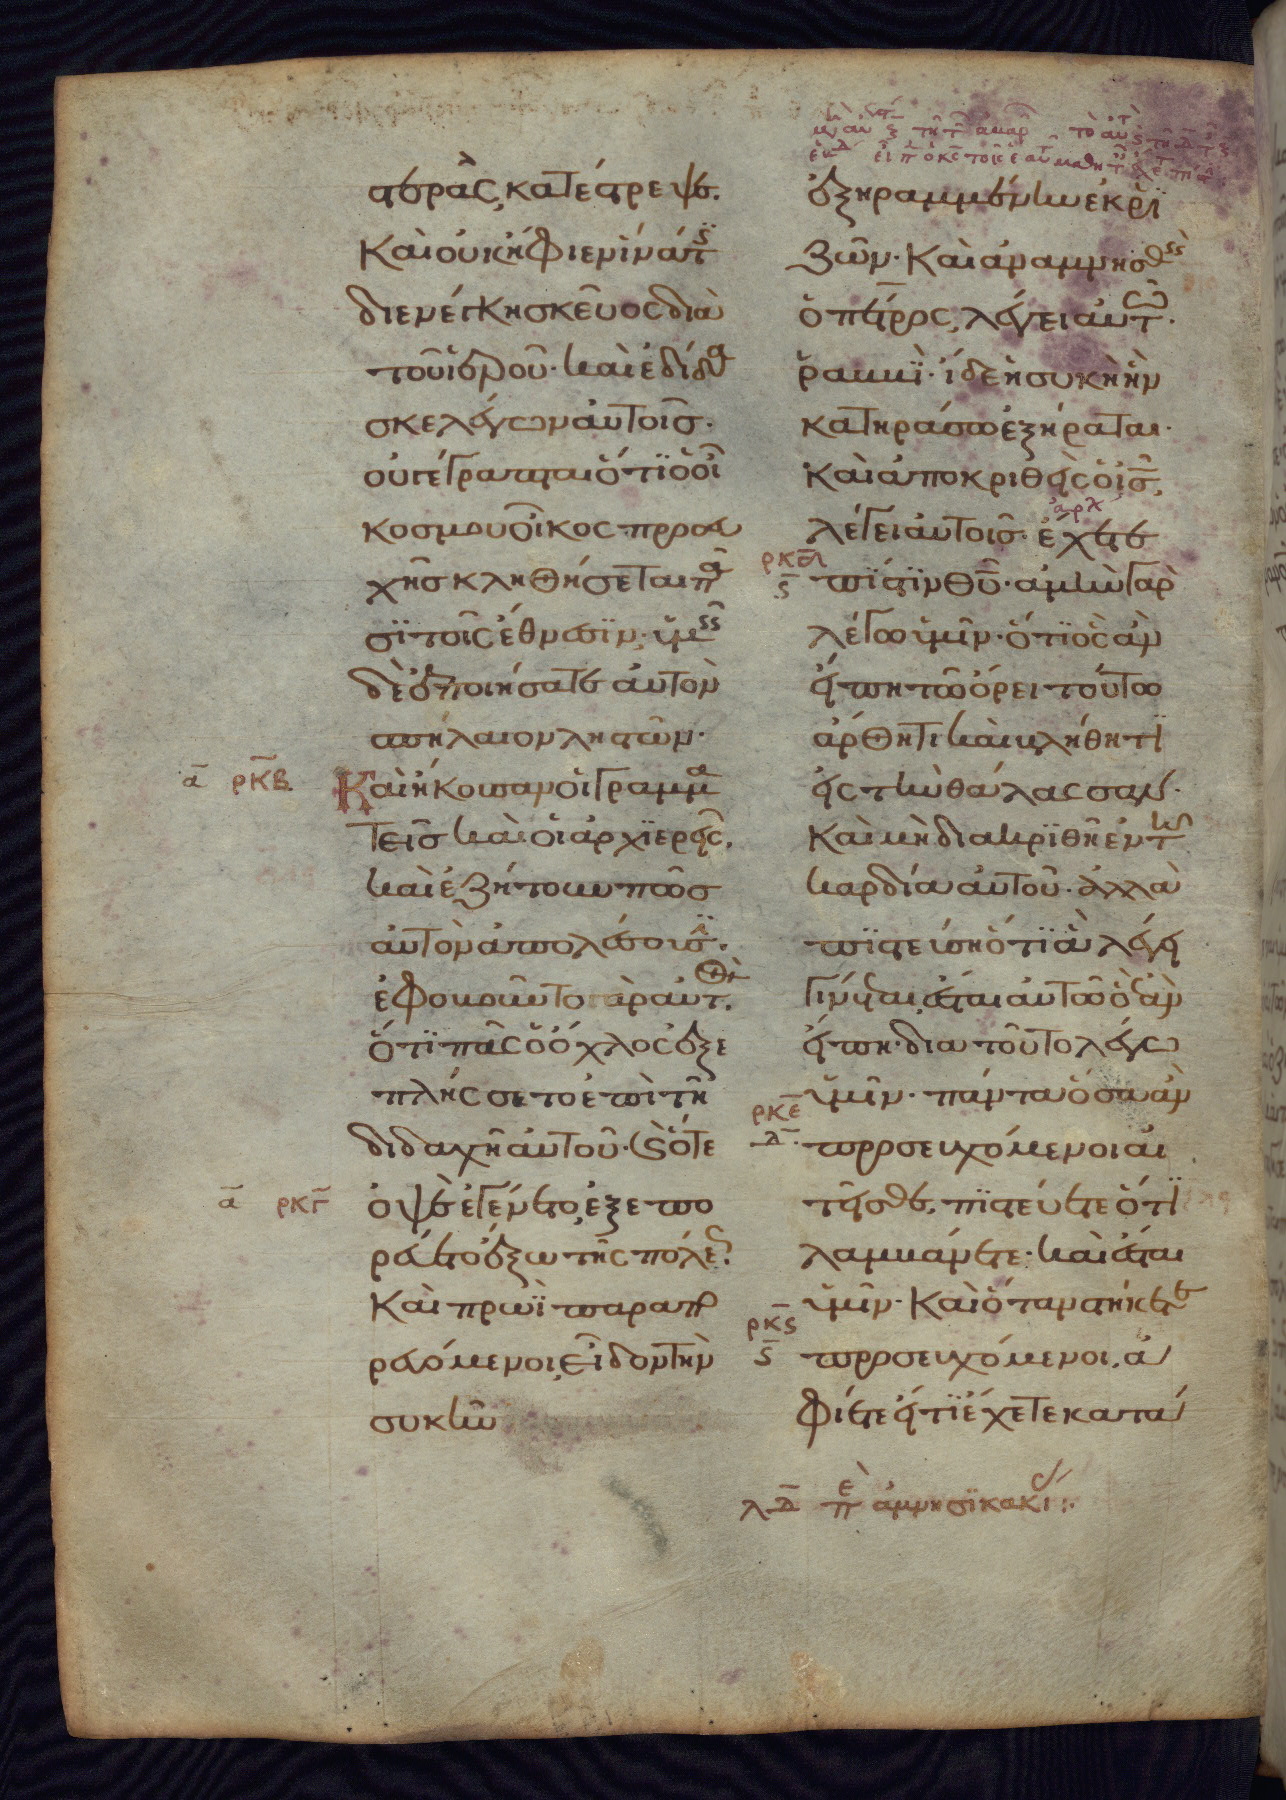 στερὰς, κατέστρεψε.
Καὶ οὐκ ἤφιεν ἵνα τις
διενέγκη σκεῦος διὰ
τοῦ ἱεροῦ· καὶ ἐδίδα
σκε λέγων αὐτοῖς·
οὐ γέγραπται ὅτι ὁ οἶ
κος μου οἶκος προσευ
χῆς κληθήσεται πᾶ
σι τοῖς ἔθνεσιν· ὑμεῖς
δὲ ἐποιήσατε αὐτὸν
σπήλαιον ληστῶν·
α ρκβ Καὶ ἤκουσαν οἱ γραμμα
τεῖς καὶ οἱ ἀρχιερεῖς,
καὶ ἐζήτουν πῶς
αὐτὸν ἀπολέσουσιν·
ἐφοβοῦντο γὰρ αὐτὸν,
ὅτι πᾶς ὁ ὄχλος ἐξε
πλήσσετο ἐπὶ τῆ
διδαχῆ αὐτοῦ· Καὶ ὅτε
α ρκγ ὀψὲ ἐγένετο, ἐξεπο
ρεύετο ἔξω τῆς πόλεως·
Καὶ πρωῒ παραπο
ρευόμενοι, εἶδον τὴν
συκῆν
ἐξηραμμένην ἐκ ρι
ζῶν· Καὶ ἀναμνησθεὶς
ὁ πέτρος, λέγει αὐτῶ·
ῥαββὶ· ἴδε ἡ συκῆ ἣν
κατηράσω ἐξήραται·
Καὶ ἀποκριθεὶς ὁ ις,
ἀρχ
λέγει αὐτοῖς· ἔχετε
ρκδ ς πίστιν θυ· ἀμὴν γὰρ
λέγω ὑμῖν· ὅτι ὃς ἂν
εἴπη τῶ ὄρει τούτω
ἄρθητι καὶ βλήθητι
εἰς τὴν θάλασσαν·
Καὶ μὴ διακριθῆ ἐν τῆ
καρδία αὐτοῦ· ἀλλὰ
πιστεύση ὅτι ἃ λέγει
γίνεται, ἔσται αὐτῶ ὃ ἐὰν
εἴπη· δια τοῦτο λέγω
ὑμῖν· πάντα ὅσα ἂν
ρκε δ προσευχόμενοι αἰ
τεῖσθε, πιστεύετε ὅτι
λαμβάνετε· καὶ ἔσται
ὑμῖν· Καὶ ὅταν στήκετε
ρκς ς προσευχόμενοι, ἀ
φίετε εἴ τι ἔχετε κατά
λδ πε ἀμνησικακί